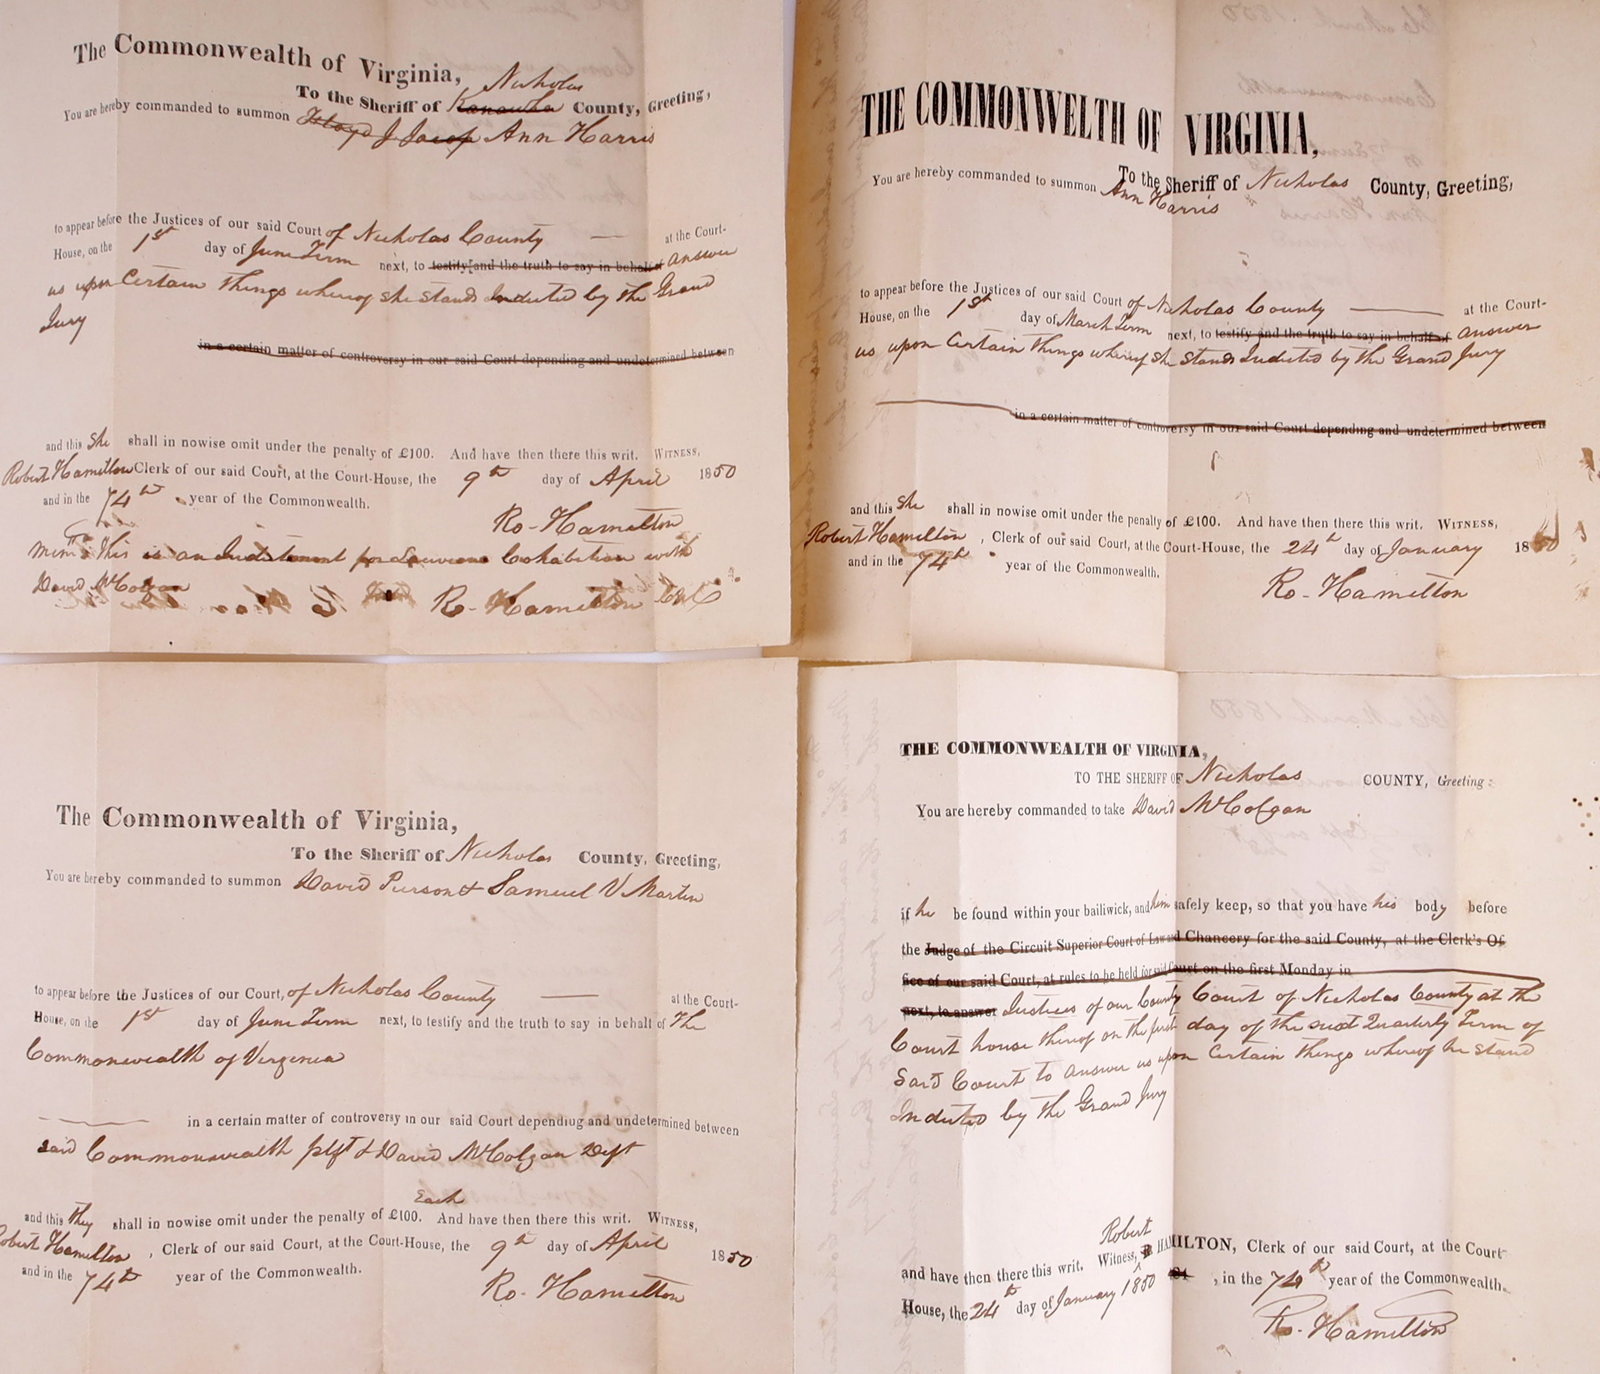 The Commonwealth of Virginia,
Nicholas
To the Sheriff of Kanawha County, Greeting,
You are hereby commanded to summon Floyd J Jacop Ann Harris
to appear before the Justices of our said Court of Nicholas County — at the Court-
House, on the 1st day of June Term next, to testify and the truth to say in behalf of answer
us upon Certain things whereof she stands Indicted by the Grand
Jury
in a certain matter of controversy in our said Court depending and undetermined between
and this she shall in nowise omit under the penalty of £100. And have then there this writ. WITNESS,
Robert Hamilton Clerk of our said Court, at the Court-House, the 9th day of April 1850
and in the 74th year of the Commonwealth.
Ro- Hamilton
This is an Indictment for Cohabitation with
David McColgan
Ro- Hamilton Clk
THE COMMONWELTH OF VIRGINIA,
To the Sheriff of Nicholas County, Greeting,
You are hereby commanded to summon Ann Harris
to appear before the Justices of our said Court of Nicholas County — at the Court-
House, on the 1st day of March Term next, to testify and the truth to say in behalf of answer
us upon Certain things whereof she stands Indicted by the Grand Jury
in a certain matter of controversy in our said Court depending and undetermined between
and this she shall in nowise omit under the penalty of £100. And have then there this writ. WITNESS,
Robert Hamilton, Clerk of our said Court, at the Court-House, the 24th day of January 1850
and in the 74th year of the Commonwealth.
Ro- Hamilton
The Commonwealth of Virginia,
To the Sheriff of Nicholas County, Greeting,
You are hereby commanded to summon David Pierson & Samuel V Martin
to appear before the Justices of our Court, of Nicholas County — at the Court-
House, on the 1st day of June Term next, to testify and the truth to say in behalf of The
Commonwealth of Virginia
in a certain matter of controversy in our said Court depending and undetermined between
said Commonwealth plft & David McColgan Deft
Each
and this they shall in nowise omit under the penalty of £100. And have then there this writ. WITNESS,
Robert Hamilton, Clerk of our said Court, at the Court-House, the 9th day of April 1850
and in the 74th year of the Commonwealth.
Ro- Hamilton
THE COMMONWEALTH OF VIRGINIA,
TO THE SHERIFF OF Nicholas COUNTY, Greeting:
You are hereby commanded to take David McColgan
if he be found within your bailiwick, and him safely keep, so that you have his body before
the Judge of the Circuit Superior Court of Law and Chancery for the said County, at the Clerk's Of
fice of our said Court, at rules to be held for said Court on the first Monday in
next, to answer Justices of our County Court of Nicholas County at the
Court house thereof on the first day of the next Quarterly Term of
Said Court to answer us upon Certain things whereof he stand
Indicted by the Grand Jury
Robert
and have then there this writ. Witness, HAMILTON, Clerk of our said Court, at the Court-
House, the 24th day of January 1850, in the 74th year of the Commonwealth.
Ro- Hamilton